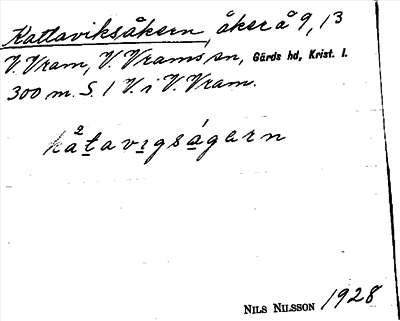 Kattaviksåkern, åker å 9, 13
V. Vram, V. Vrams sn, Gärds hd, Krist. l.
300 m. S. 1 V. i V. Vram.
kåtavıgságern
NILS NILSSON 1928